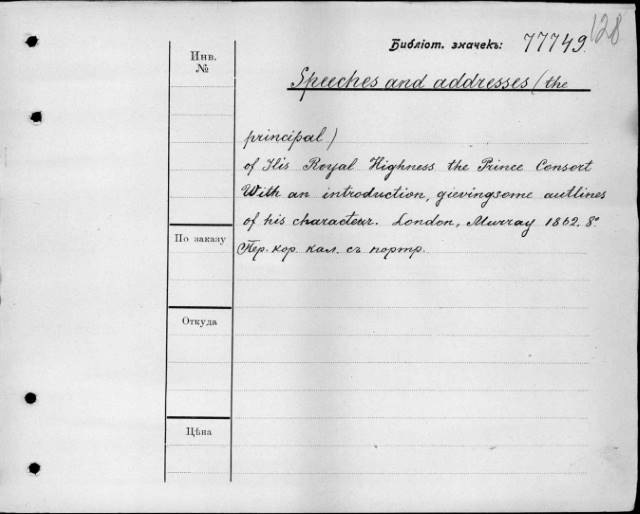 128
Библіот. значекъ: 77749.
Инв.
№
Speeches and addresses (the
principal)
of His Royal Highness the Prince Consort
With an introduction, gievingsome autlines
of his characteur. London, Murray 1862. 8°
По заказу
Пер. кор. кал. съ портр.
Откуда
Цѣна